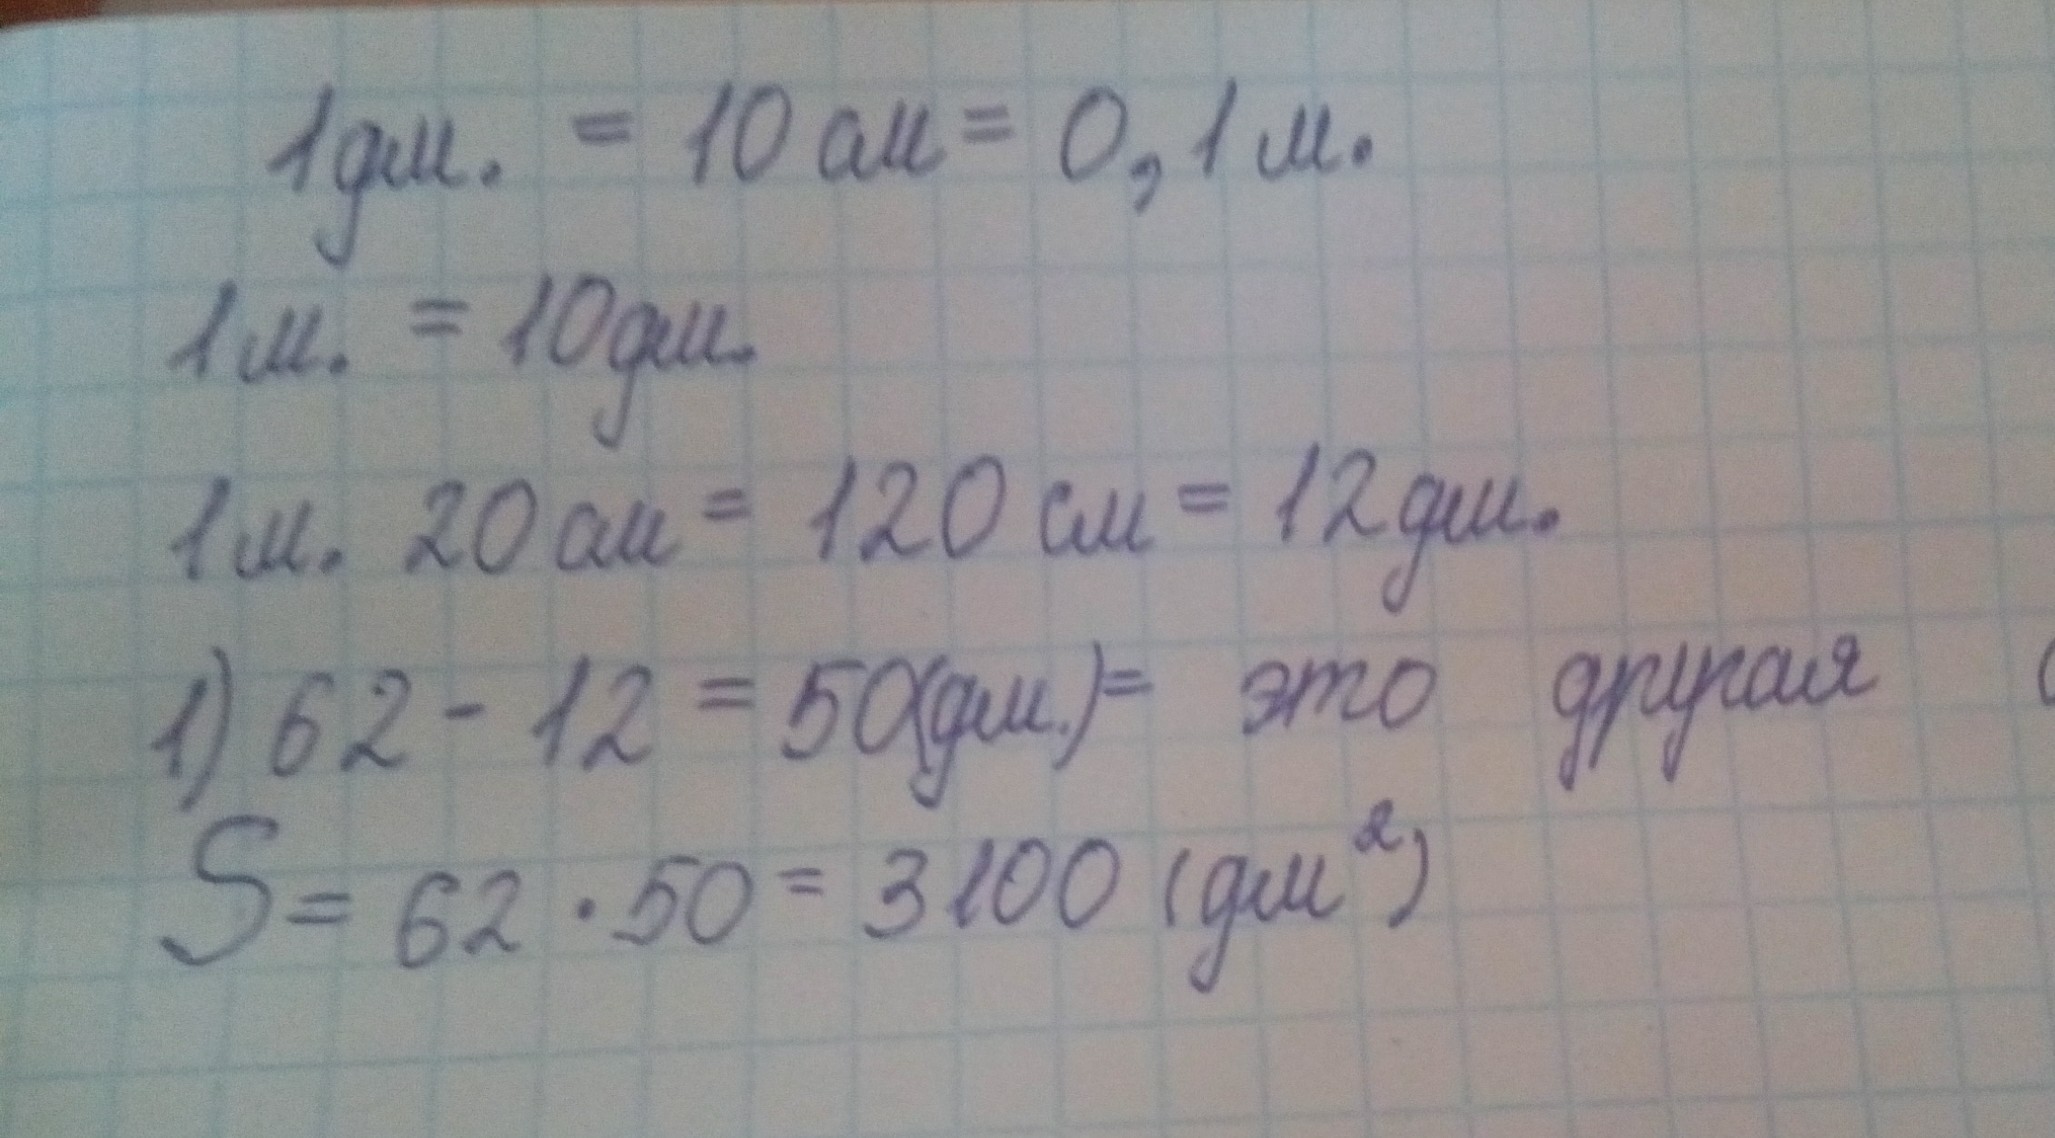 1дм. = 10 см = 0,1 м.
1м. = 10дм.
1м. 20 см = 120 см = 12дм.
1) 62 - 12 = 50(дм.) = это другая
S = 62 · 50 = 3100 (дм²)